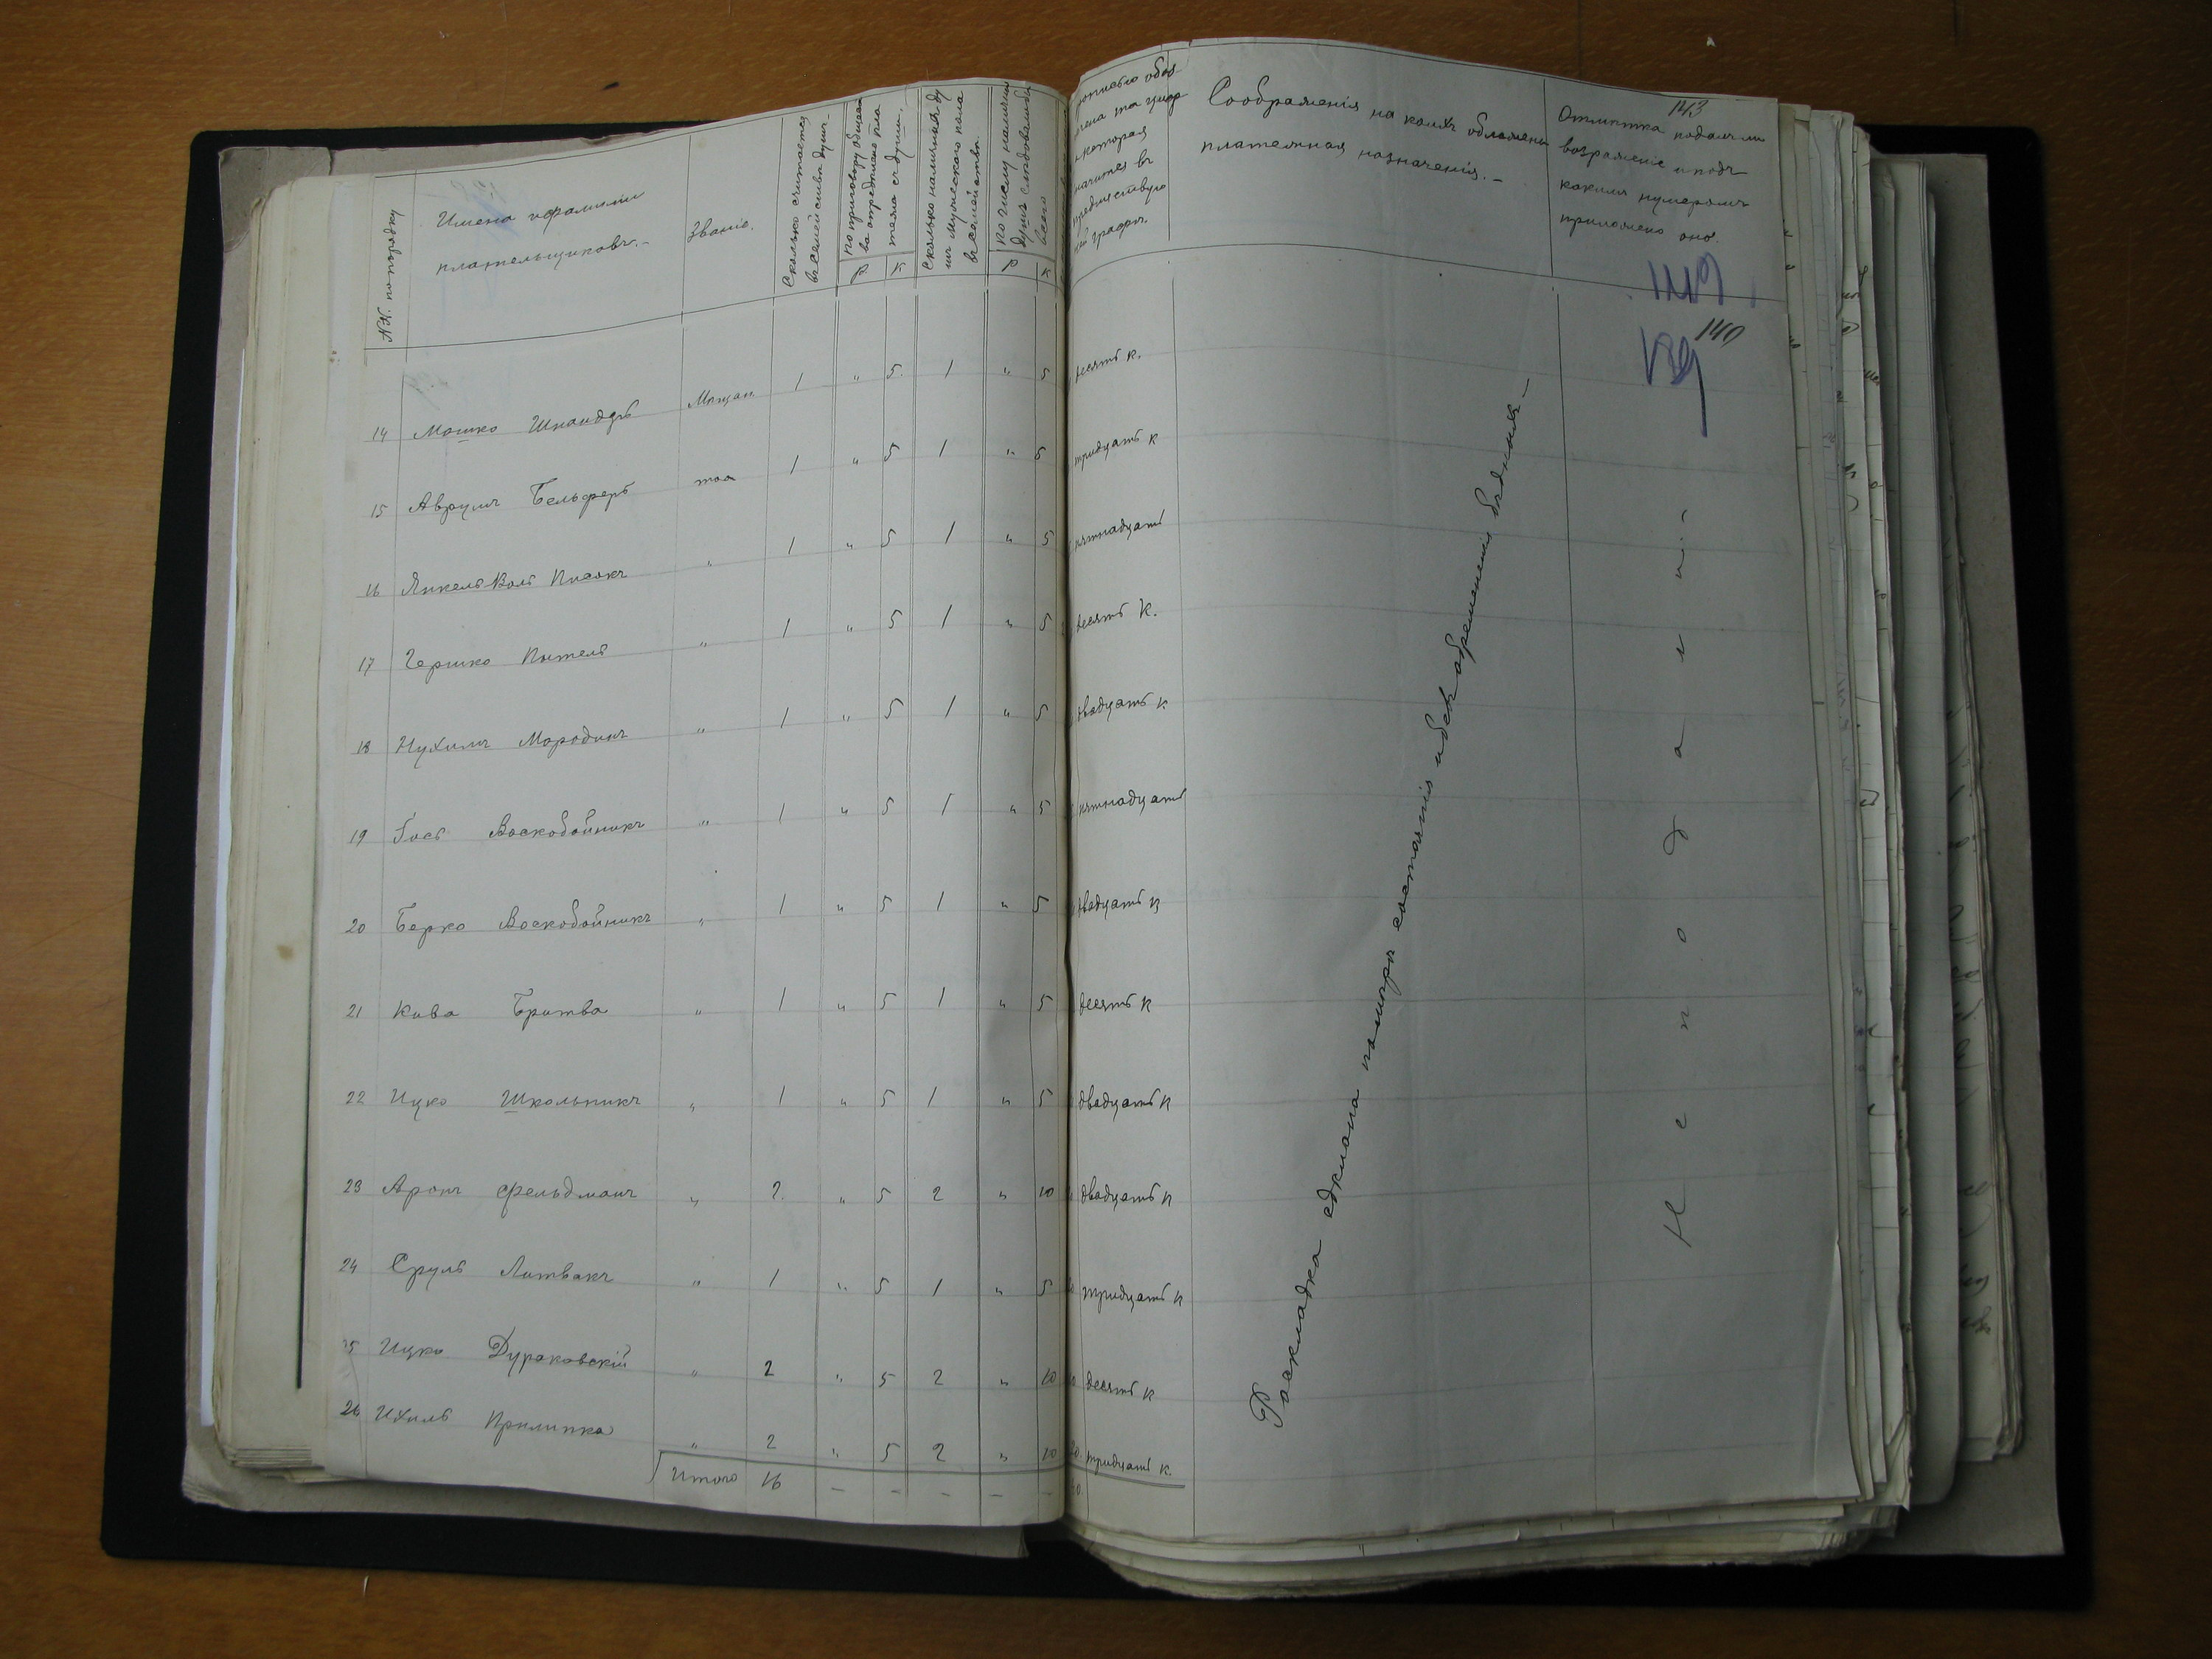 №№. по порядку
Имена и фамилии
плательщиковъ.-
Званіе.
Сколько считается
въ семействѣ душъ.-
По приговору общест
ва опредѣлено пла
тежа съ души.
Р К
Сколько наличныхъ ду
шъ мужескаго пола
въ семействѣ.
По числу наличныхъ
душъ слѣдовало бы
всего
Р К
прописью обоз
начена та цифра
которая
значится въ
предшествую
щей графѣ.
Соображенія на коихъ обложены
платежная назначенія.-
143
Отмѣтка подалъ ли
возраженіе и подъ
какимъ нумеромъ
приложено оно.
140
14 Мошко Шнайдеръ Мѣщан. 1 " 5. 1 " 5 десять к.
15 Аврумъ Бельферъ тоа 1 " 5 1 " 5 тридцать к
16 Янкель Воль Писокъ " 1 " 5 1 " 5 пятнадцать
17 Гершко Пытель " 1 " 5 1 " 5 десять к.
18 Нухимъ Мородинъ " 1 " 5 1 " 5 двадцать к
19 Гось Воскобойникъ " 1 " 5 1 " 5 пятнадцать
20 Берко Воскобойникъ " 1 " 5 1 " 5 двадцать к
21 Кива Бритва " 1 " 5 1 " 5 десять к
22 Ицко Школьникъ " 1 " 5 1 " 5 двадцать к
23 Аронъ Фельдманъ " 2. " 5 2 " 10 двадцать к
24 Сруль Литвакъ " 1 " 5 1 " 5 тридцать к
25 Ицко Дураковскій " 2 " 5 2 " 10 десять к
26 Ихиль Прилипка " 2 " 5 2 " 10 тридцать к.
Итого 16 - - - - -
Раскладка сдѣлана по мѣрѣ состоянія и безъ обремененія бѣдныхъ.-
Не подали.-